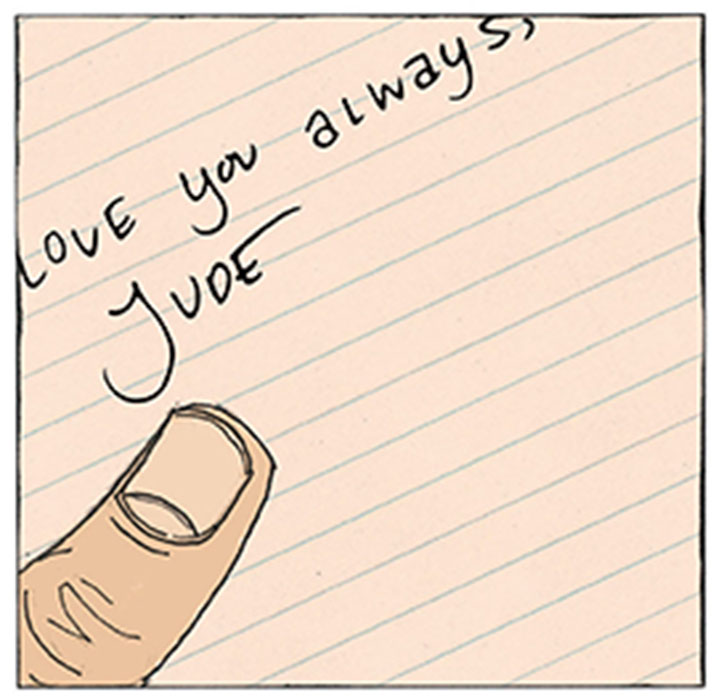 LOVE you always,
JUDE